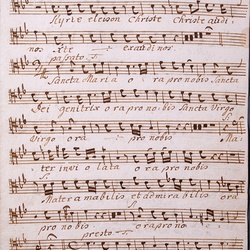 Kyrie eleison Christe Christe audi
nos Xte exaudi nos
Sancta Maria o ra pro nobis Sancta
Dei genitrix o ra pro no bis Sancta Virgo
Virgo ora pro nobis Ma
ter invi o lata o ra pro nobis
Mater amabilis et admirabilis ora
pro nobis o ra pro no
presto